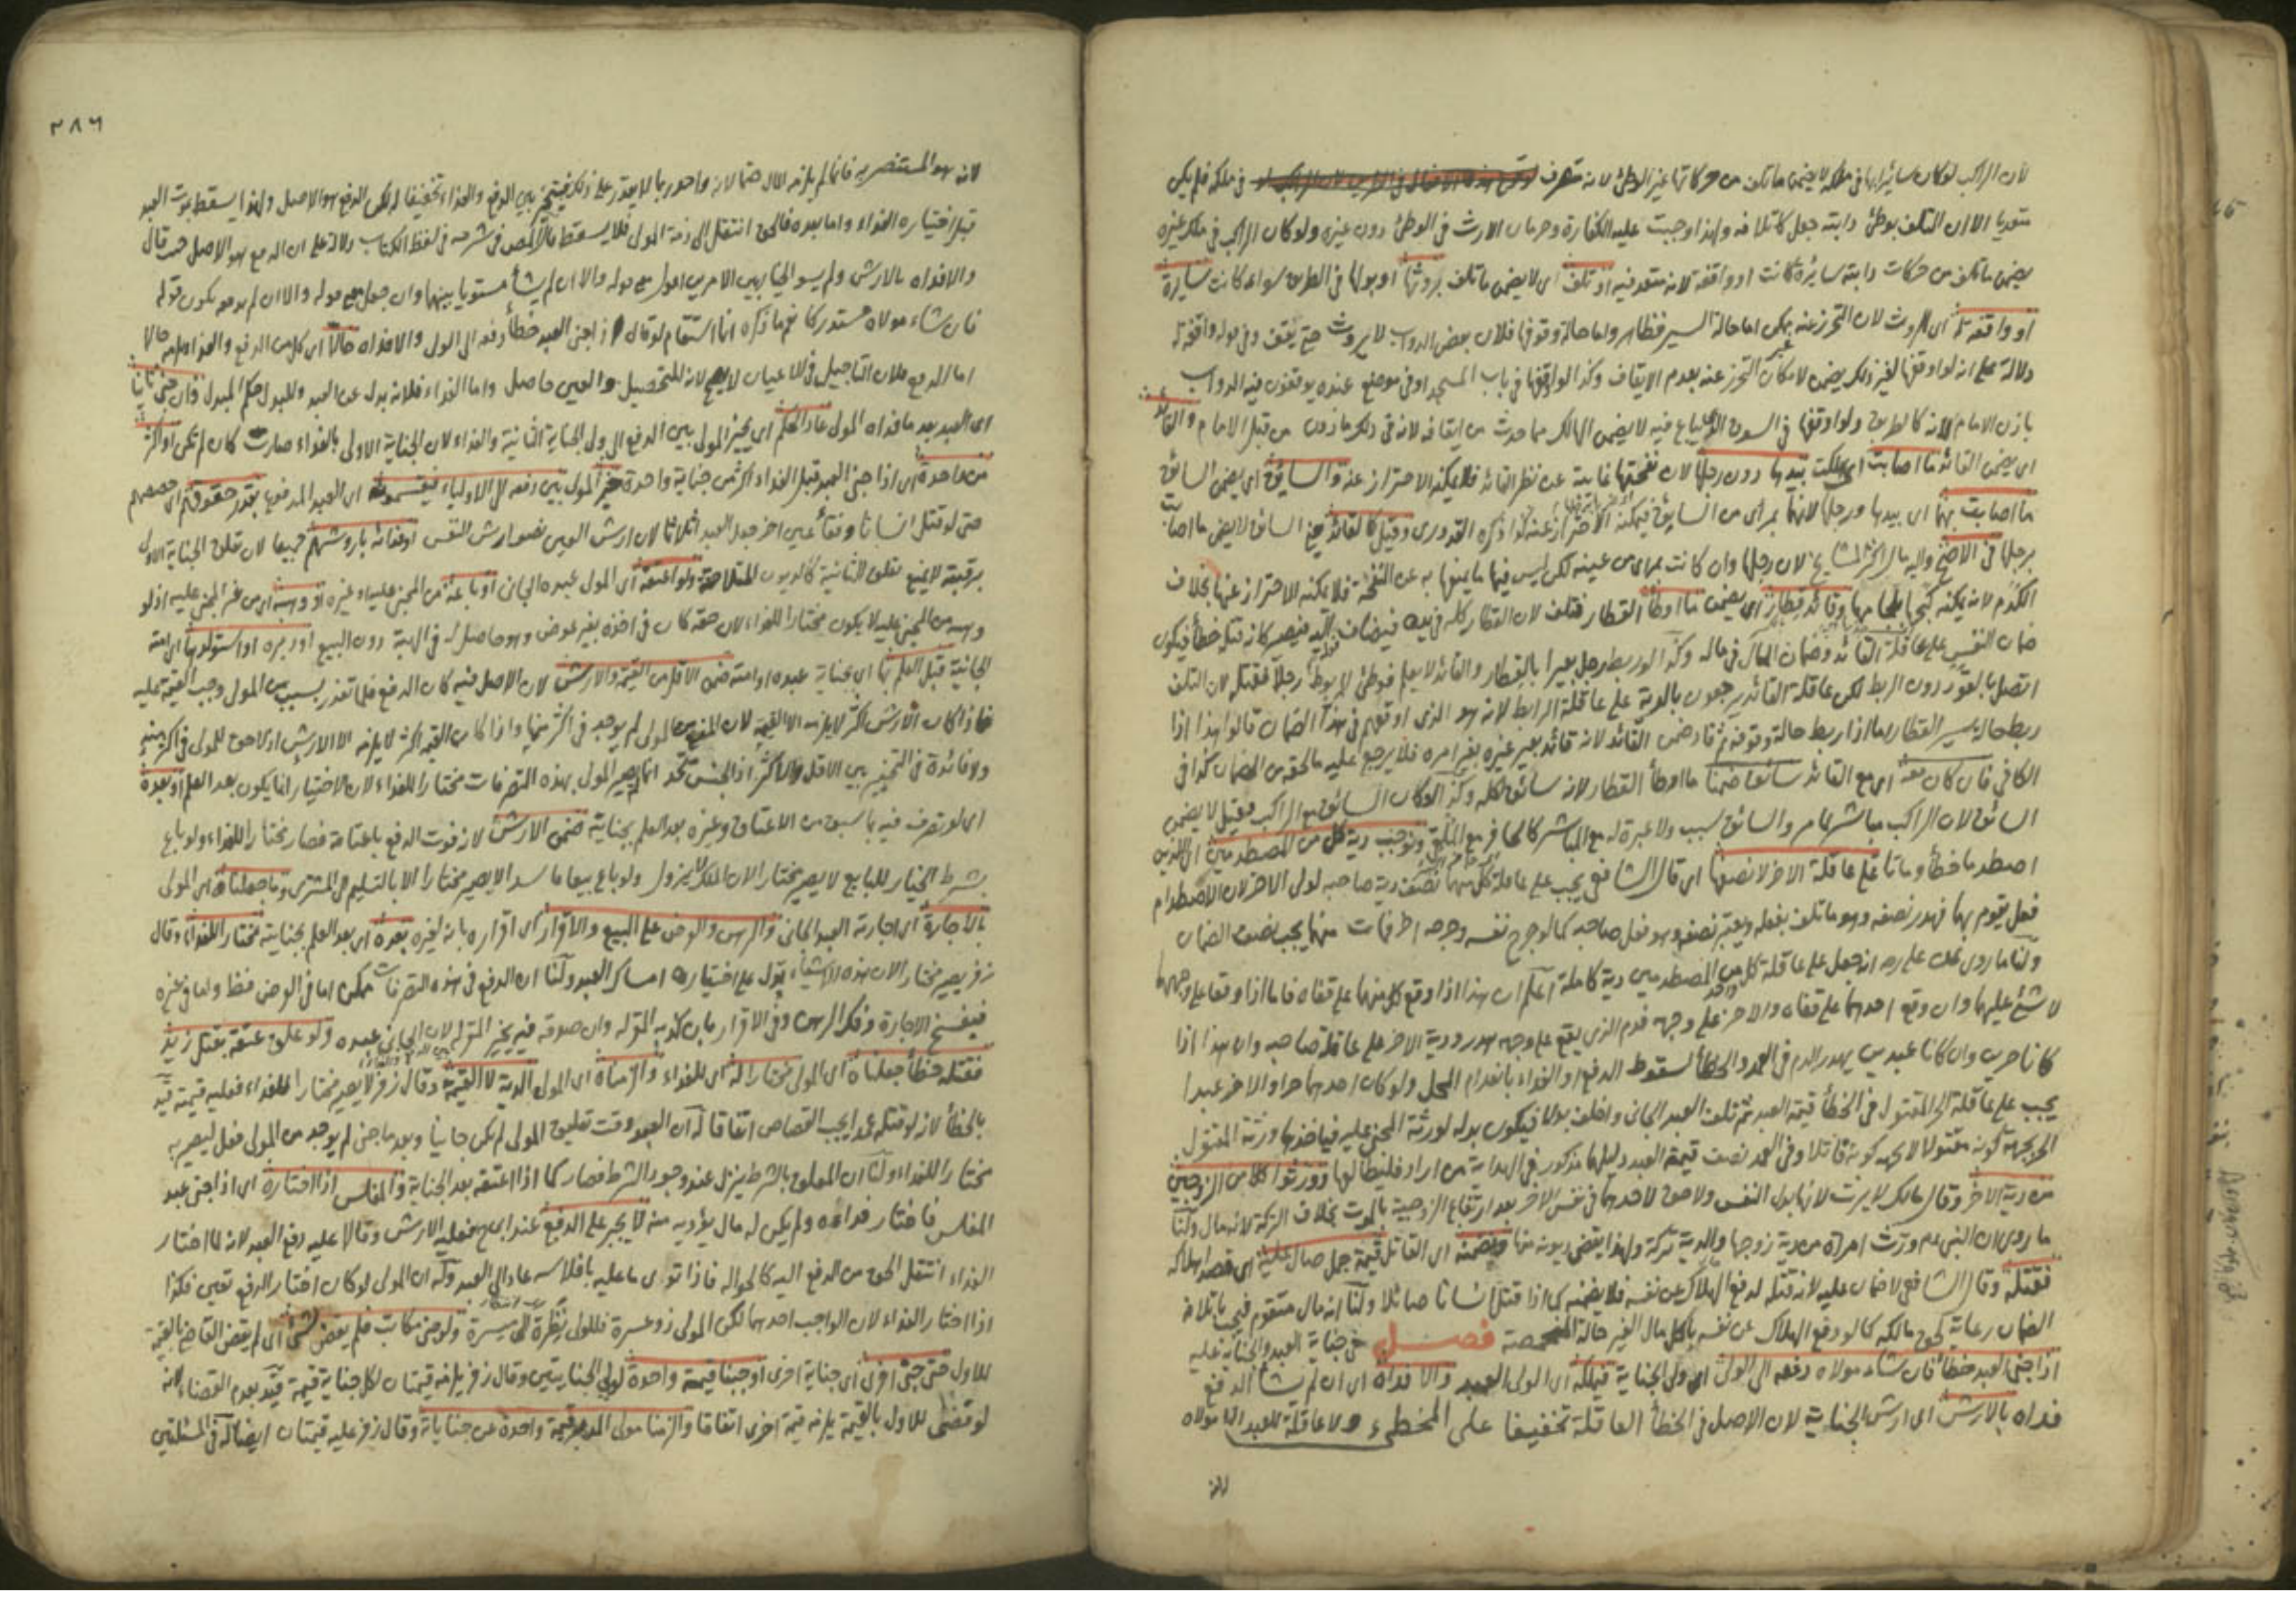 لان الراكب لو كان سائرا بها في ملكه لا يضمن ما تلف من حركاتها غير الوطئ لانه متصرف في ملكه فلم يكن
متعديا الا ان التلف بوطئ دابته جعل كاتلافه ولهذا وجبت عليه الكفارة وحرمان الارث في الوطئ دون غيره ولو كان الراكب في ملك غيره
يضمن ما تلف من حركات دابته سائرة كانت او واقفة لانه متعد فيه او تلف اى لا يضمن ما تلف بروثها او بولها في الطريق سواء كانت سائرة
او واقفة له اى للروث لان التحرز عنه يمكن اما حالة السير فظاهر واما حالة وقوفها فلان بعض الدواب لا يروث حتى يقف وفي قوله واقفة له
دلالة على انه لو اوقفها لغير ذلك يضمن لامكان التحرز عنه بعدم الايقاف وكذا لو اوقفها في باب المسجد او في موضع عنده يوقفون فيه الدواب
باذن الامام لانه كالطريق ولو اوقفها في السوق الذى يباع فيه لا يضمن المالك مما حدث من ايقافه لانه في ذلك ماذون من قبل الامام والقائد
اى يضمن القائد ما اصابت اى اهلكت بيدها دون رجلها لان نفحتها غائبة عن نظر القائد فلا يمكنه الاحتراز عنه والسايق اى يضمن السائق
ما اصابت بهما اى بيدها ورجلها لانهما بمرأى من السايق فيمكنه الاحتراز عنه كذا ذكره القدورى وقيل كالقائد يعنى السائق لا يضمن ما اصابت
برجلها في الاصح واليه مال اكثر المشايخ لان رجلها وان كانت بمرأى من عينه لكن ليس فيها ما يمنعها به عن النفحة فلا يمكنه الاحتراز عنها بخلاف
الكدم لانه يمكنه كبحها بلجامها وقائد قطار اى يضمن ما اوطأ القطار فتلف لان القطار كله في يده فيضاف اليه فيصير كانه قتله خطأ فيكون
ضمان النفس على عاقلة القائد وضمان المال في ماله وكذا لو ربط رجل بعيرا بالقطار والقائد لا يعلم فوطئ المربوط رجلا فقتله لان التلف
اتصل بالقود دون الربط لكن عاقلة القائد يرجعون بالدية على عاقلة الرابط لانه هو الذى اوقعهم في هذا الضمان قالوا هذا اذا
ربط حال سير القطار اما اذا ربط حالة وقوفه ثم قاد ضمن القائد لانه قائد بعير غيره بغير امره فلا يرجع عليه ما لحقه من الضمان كذا في
الكافي فان كان معه اى مع القائد سائق ضمنا ما اوطأ القطار لانه سائق لكله وكذا لو كان السائق مع الراكب فقيل لا يضمن
السائق لان الراكب مباشر كما مر والسائق سبب ولا عبرة له مع المباشر كالحافر مع الملقى ونوجب دية كل من المصطدمين اى اللذين
اصطدما خطأ وماتا على عاقلة الاخر لا نصفها اى قال الشافعي يجب على عاقلة كل منهما نصف دية صاحبه لولى الاخر لان الاصطدام
فعل يقوم بهما فهدر نصفه وهو ما تلف بفعله ويعتبر نصفه وهو فعل صاحبه كما لو جرح نفسه وجرحه اخر فمات منهما يجب نصف الضمان
ولنا ما روى عن على رضه انه جعل على عاقلة كل من المصطدمين دية كاملة اعلم ان هذا اذا وقع كل منهما على قفاه فاما اذا وقعا على وجههما
لا شئ عليهما وان وقع احدهما على قفاه والاخر على وجهه فدم الذى يقع على وجهه هدر ودية الاخر على عاقلة صاحبه وان هذا اذا
كانا حرين وان كانا عبدين يهدر الدم في العمد والخطأ لسقوط الدفع او الفداء بانعدام المحل ولو كان احدهما حرا والاخر عبدا
يجب على عاقلة الحر المقتول في الخطأ قيمة العبد ثم تلف العبد الجانى واخلف بدلا فيكون بدله لورثة المجنى عليه فياخذها ورثة المقتول
الحر بجهة كونه مقتولا لا بجهة كونه قاتلا وفي العمد نصف قيمة العبد ودليلها مذكور في الهداية من اراد فليطالعها وورثوا كلا من الزوجين
من دية الاخر وقال مالك لا يرث لانها بدل النفس ولا حق لاحدهما في نفس الاخر بعد ارتفاع الزوجية بالموت بخلاف التركة لانه مال ولنا
ما روى ان النبى عم ورث امرأة من دية زوجها والدية تركة ولهذا يقضى ديونه منها ويضمنه اى القاتل قيمة جمل صال عليه اى قصد اهلاكه
فقتله وقال الشافعي لا ضمان عليه لانه قتله لدفع الهلاك عن نفسه فلا يضمنه كما اذا قتل انسانا صائلا ولنا انه مال متقوم فيجب باتلافه
الضمان رعاية لحق مالكه كما لو دفع الهلاك عن نفسه باكل مال الغير حالة المخمصة فصل في جناية العبد والجناية عليه
اذا جنى العبد خطأ فان شاء مولاه دفعه الى الولى اى ولى الجناية فيملكه اى الولى العبد والا فداه اى ان لم يشأ الدفع
فداه بالارش اى ارش الجناية لان الاصل في الخطأ العاقلة تخفيفا على المخطىء ولا عاقلة للعبد الا مولاه
لانه
٣٨٦
لانه هو المستنصر به فانما لم يلزمه المال حتما لانه واحد ربما لا يقدر على ذلك فيتخير بين الدفع والفداء تخفيفا له لكن الدفع هو الاصل ولهذا يسقط بموت العبد
قبل اختياره الفداء واما بعده فالحق انتقل الى ذمة المولى فلا يسقط في لفظ الكتاب دلالة على ان الدفع هو الاصل حيث قال
والا فداه بالارش ولم يسو الخيار بين الامرين اقول مع قوله والا ان لم يشأ مستويا بينهما وان جعل مع قوله والا ان لم يدفعه يكون قوله
فان شاء مولاه مستدركا نعم ما ذكره انما استقام لو قال اذا جنى العبد خطأ دفعه الى الولى والا فداه حالا اى كل من الدفع والفداء يلزمه حالا
اما الدفع فلان التاجيل في الاعيان لا يصح لانه للتحصيل والعين حاصل واما الفداء فلانه بدل عن العبد وللبدل حكم المبدل وان جنى ثانيا
اى العبد بعد ما فداه المولى عاد الحكم اى يخير المولى بين الدفع الى ولى الجناية الثانية والفداء لان الجناية الاولى بالفداء صارت كان لم تكن او اكثر
من واحدة اى اذا جنى العبد قبل الفداء اكثر من جناية واحدة خير المولى بين دفعه الى الاولياء فيقسمونه اى العبد المدفوع بقدر حقوقهم اى حصصهم
حتى لو قتل انسانا وفقأ عين اخر جعل العبد اثلاثا لان ارش العين نصف ارش النفس او فدائه باروشهم جميعا لان تعلق الجناية الاولى
برقبته لا يمنع تعلق الثانية كالديون المتلاحقة ولو اعتقه اى المولى عبده الجانى او باعه من المجنى عليه او غيره او وهبه اى من غير المجنى عليه اذ لو
وهبه من المجنى عليه لا يكون مختارا للفداء لان حقه كان في اخذه بغير عوض وهو حاصل له في الهبة دون البيع او دبره او استولدها اى امته
الجانية قبل العلم بها اى بجناية عبده او امته ضمن الاقل من القيمة والارش لان الاصل فيه كان الدفع فلما تعذر بسبب من المولى وجب القيمة عليه
فاذا كان الارش اكثر لا يلزمه الا القيمة لان المنع من المولى لم يوجد في اكثر منها واذا كان القيمة اكثر لا يلزمه الا الارش اذ لا حق للولى في اكثر منه
ولا فائدة في التخيير بين الاقل والاكثر اذ الجنس متحد انما لم يصر المولى بهذه التصرفات مختارا للفداء لان الاختيار انما يكون بعد العلم او بعده
اى لو تصرف فيه بما سبق من الاعتاق وغيره بعد العلم بجناية ضمن الارش لانه فوت الدفع باعتاقه فصار مختارا للفداء ولو باع
بشرط الخيار للبايع لا يصير مختارا لان الملك لا يزول ولو باع بيعا فاسدا لا يصير مختارا الا بالتسليم الى المشترى وما جعلناه اى المولى
بالاجارة اى اجارة العبد الجانى والرهن والعرض على البيع والاقرار اى اقراره بانه لغيره بعده اى بعد العلم بجنايته مختارا للفداء وقال
زفر يصير مختارا لان هذه الاشياء يدل على اختياره امساك العبد ولنا ان الدفع في هذه التصرفات ممكن اما في العرض فظ واما في غيره
فيفسخ الاجارة وفك الرهن وفي الاقرار بان كذبه المقر له وان صدقه فيه يخير المقر له لان الجانى عبده ولو علق عتقه بقتل زيد
فقتله خطأ جعلناه اى المولى مختارا له اى للفداء والزمناه اى المولى الدية لا القيمة وقال زفر لا يصير مختارا للفداء فعليه قيمته قيد
بالخطأ لانه لو قتله عمدا يجب القصاص اتفاقا له ان العبد وقت تعليق المولى لم يكن جانيا وبعد ما جنى لم يوجد من المولى فعل ليصير به
مختارا للفداء ولنا ان المعلق بالشرط ينزل عند وجود الشرط فصار كما اذا اعتقه بعد الجناية والمفلس اذا اختاره اى اذا جنى عبد
المفلس فاختار فداءه ولم يكن له مال يؤديه منه لا يجبر على الدفع عند ابى ح فعليه الارش وقالا عليه دفع العبد لانه لما اختار
الفداء انتقل الحق من الدفع اليه كالحوالة فاذا توى ما عليه بافلاسه عاد الى العبد وله ان المولى لو كان اختار الدفع تعين فكذا
اذا اختار الفداء لان الواجب احدهما لكن المولى ذو عسرة فللولى نظرة الى ميسرة ولو جنى مكاتب فلم يقض بشئ اى لم يقض القاضى بالقيمة
للاول حتى جنى اخرى اى جناية اخرى اوجبنا قيمة واحدة لولى الجنايتين وقال زفر يلزمه قيمتان لكل جناية قيمة قيد بعدم القضاء لانه
لو قضى للاول بالقيمة يلزمه قيمة اخرى اتفاقا والزمنا مولى المدبر قيمة واحدة عن جناياته وقال زفر عليه قيمتان ايضا له في المسئلتين